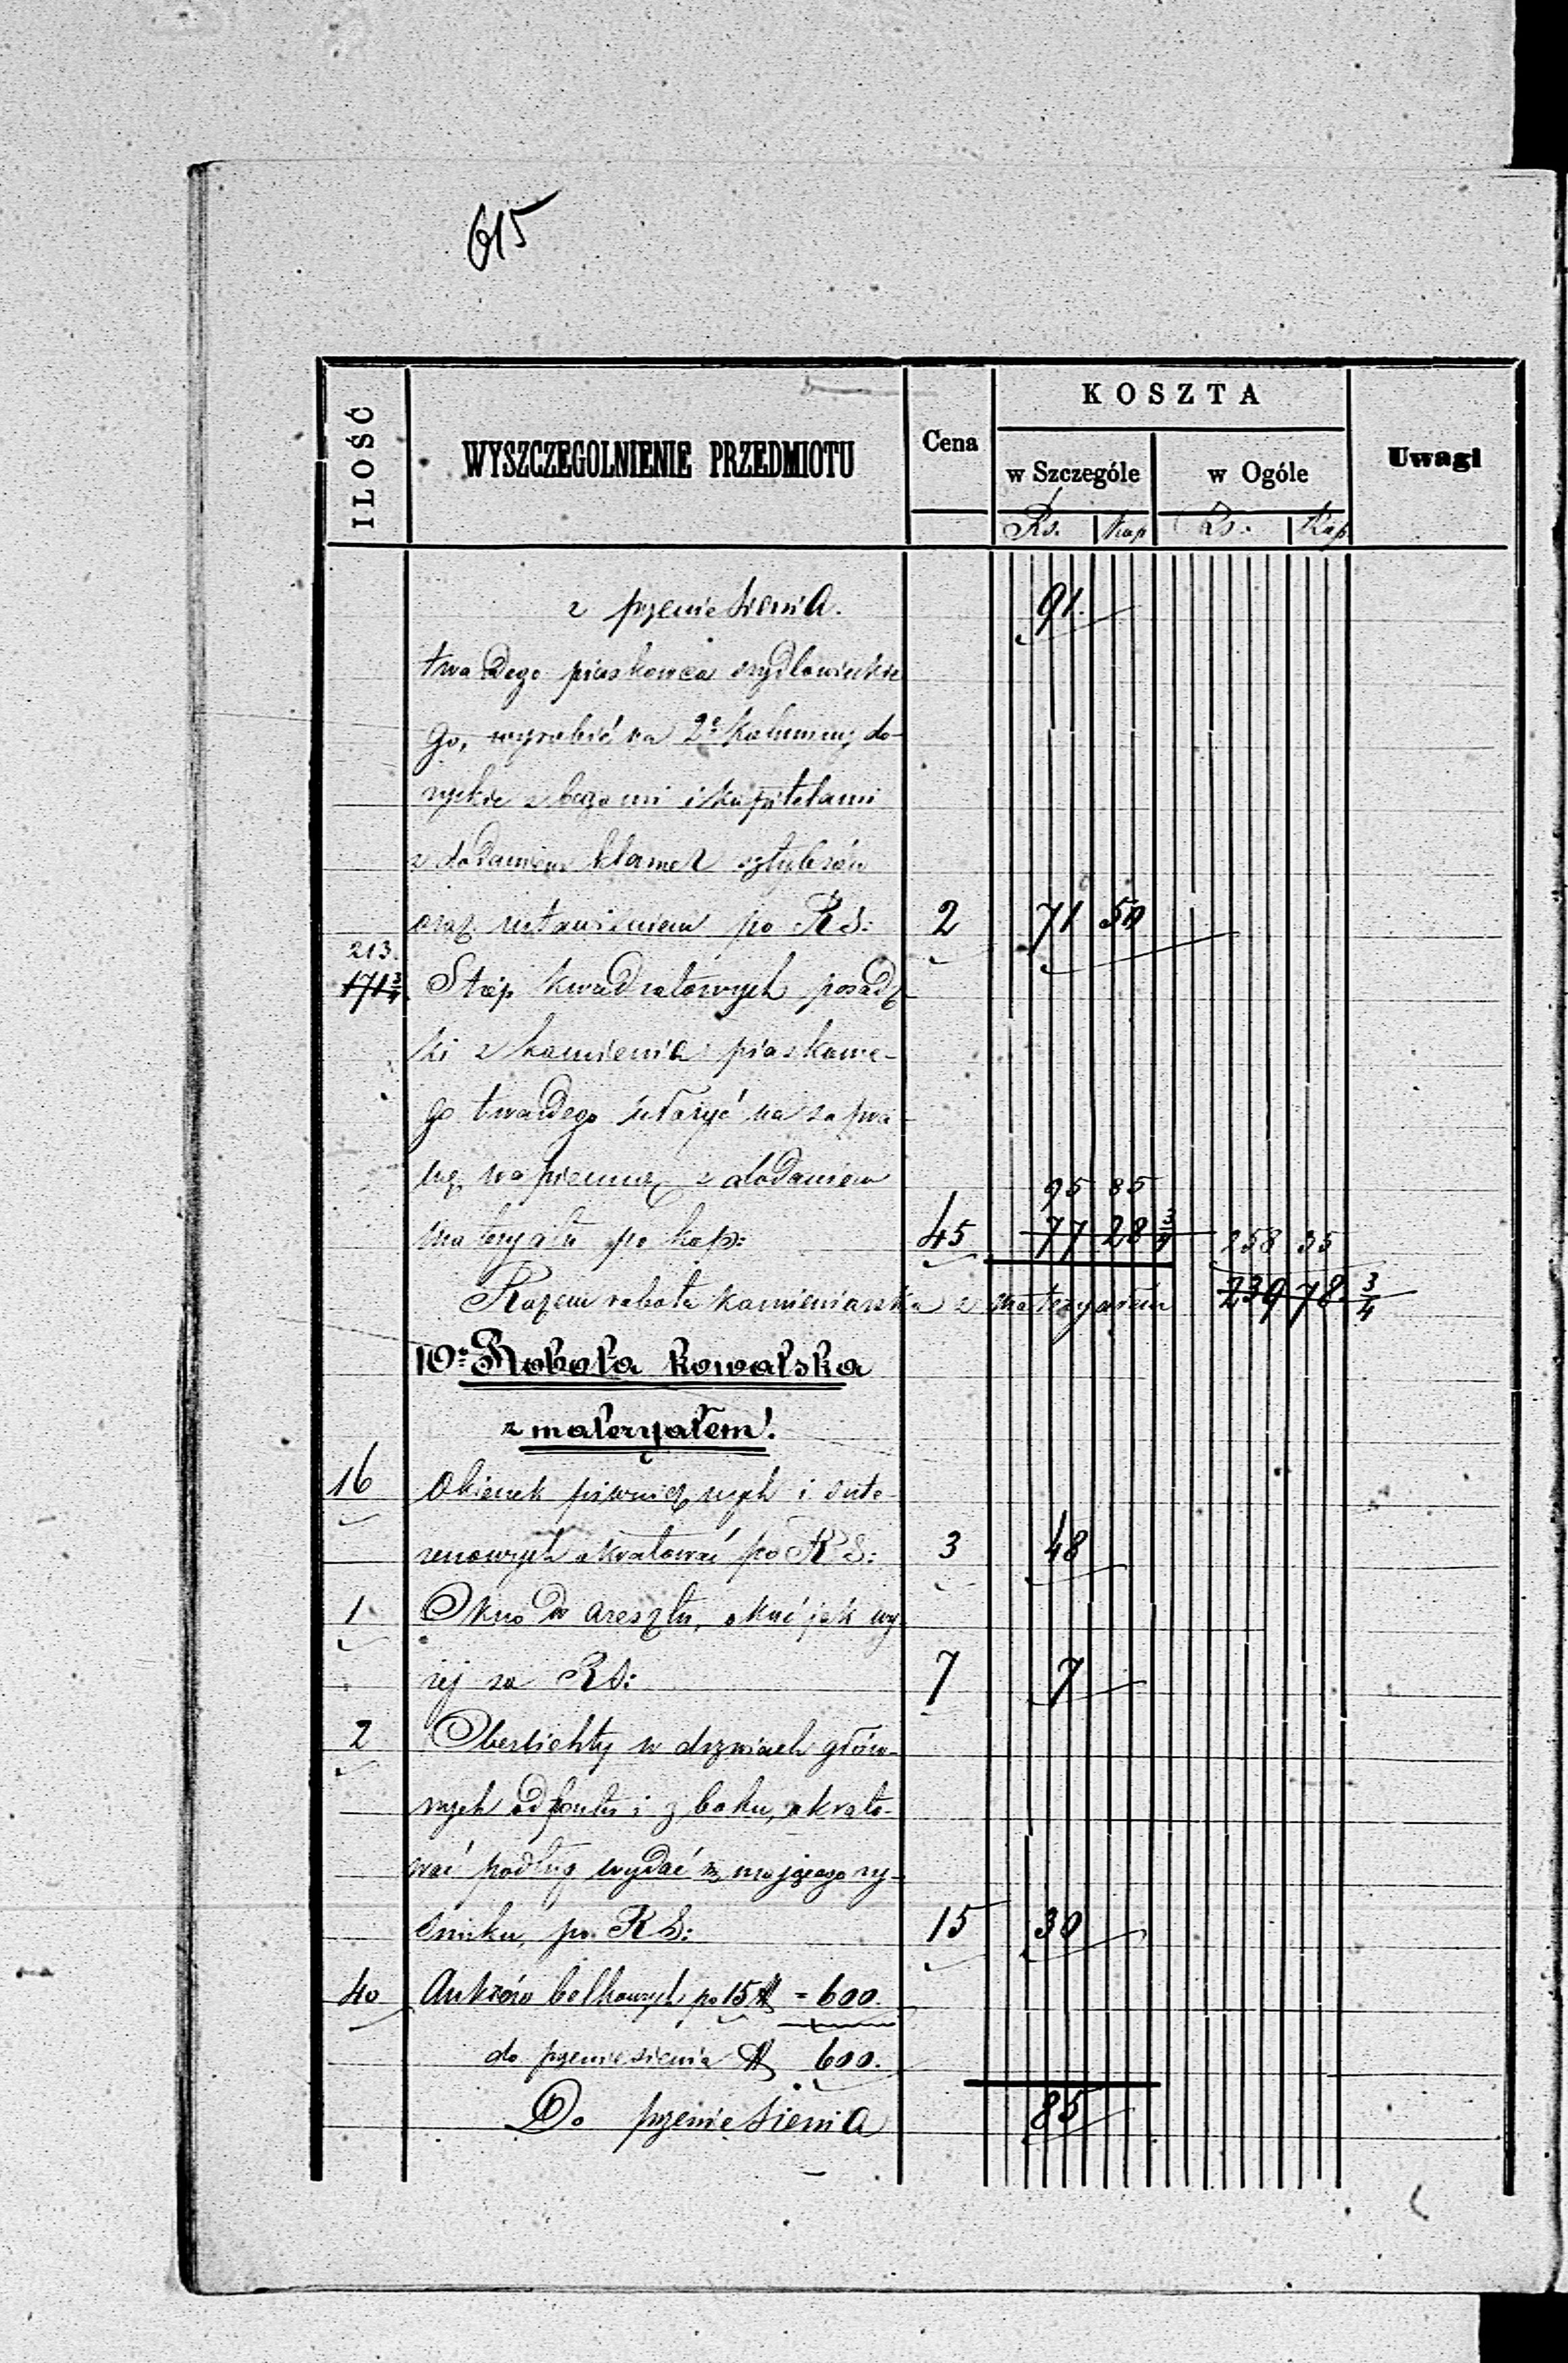 615
ILOŚĆ
WYSZCZEGOLNIENIE PRZEDMIOTU
Cena
KOSZTA
w Szczególe
w Ogóle
Uwagi
Rs. Kop Rs. Kop
z przeniesienia. 91.
twardego piaskowca szydłowieckie
go, wyrobić na 2e kolumny do-
ryckie z bazami i kapitelami
z dodaniem klamer sztybrów
oraz ustawieniem po RS: 2 71 50
213.
171 3/4 Stóp kwadratowych posadz
ki z kamienia piaskowe-
go twardego ułożyć na zapra-
wę wapienną z dodaniem
95 85
materyału po kop: 45 77 28 3/4 258 35
Razem robota kamieniarska z materyałem 239 78 3/4
10e Robota kowalska
z materyałem.
16 Okienek piwnicznych i sute-
renowych okratować po RS: 3 48
1 Okno do aresztu, okuć jak wy
żej za RS: 7 7
2 Oberlichty w drzwiach głów-
nych od frontu i z boku, okrato-
wać podług wydać się mającego ry-
sunku, po RS: 15 30
40 Ankrów belkowych po 15 ℔ = 600.
do przeniesienia ℔ 600.
Do przeniesienia 85